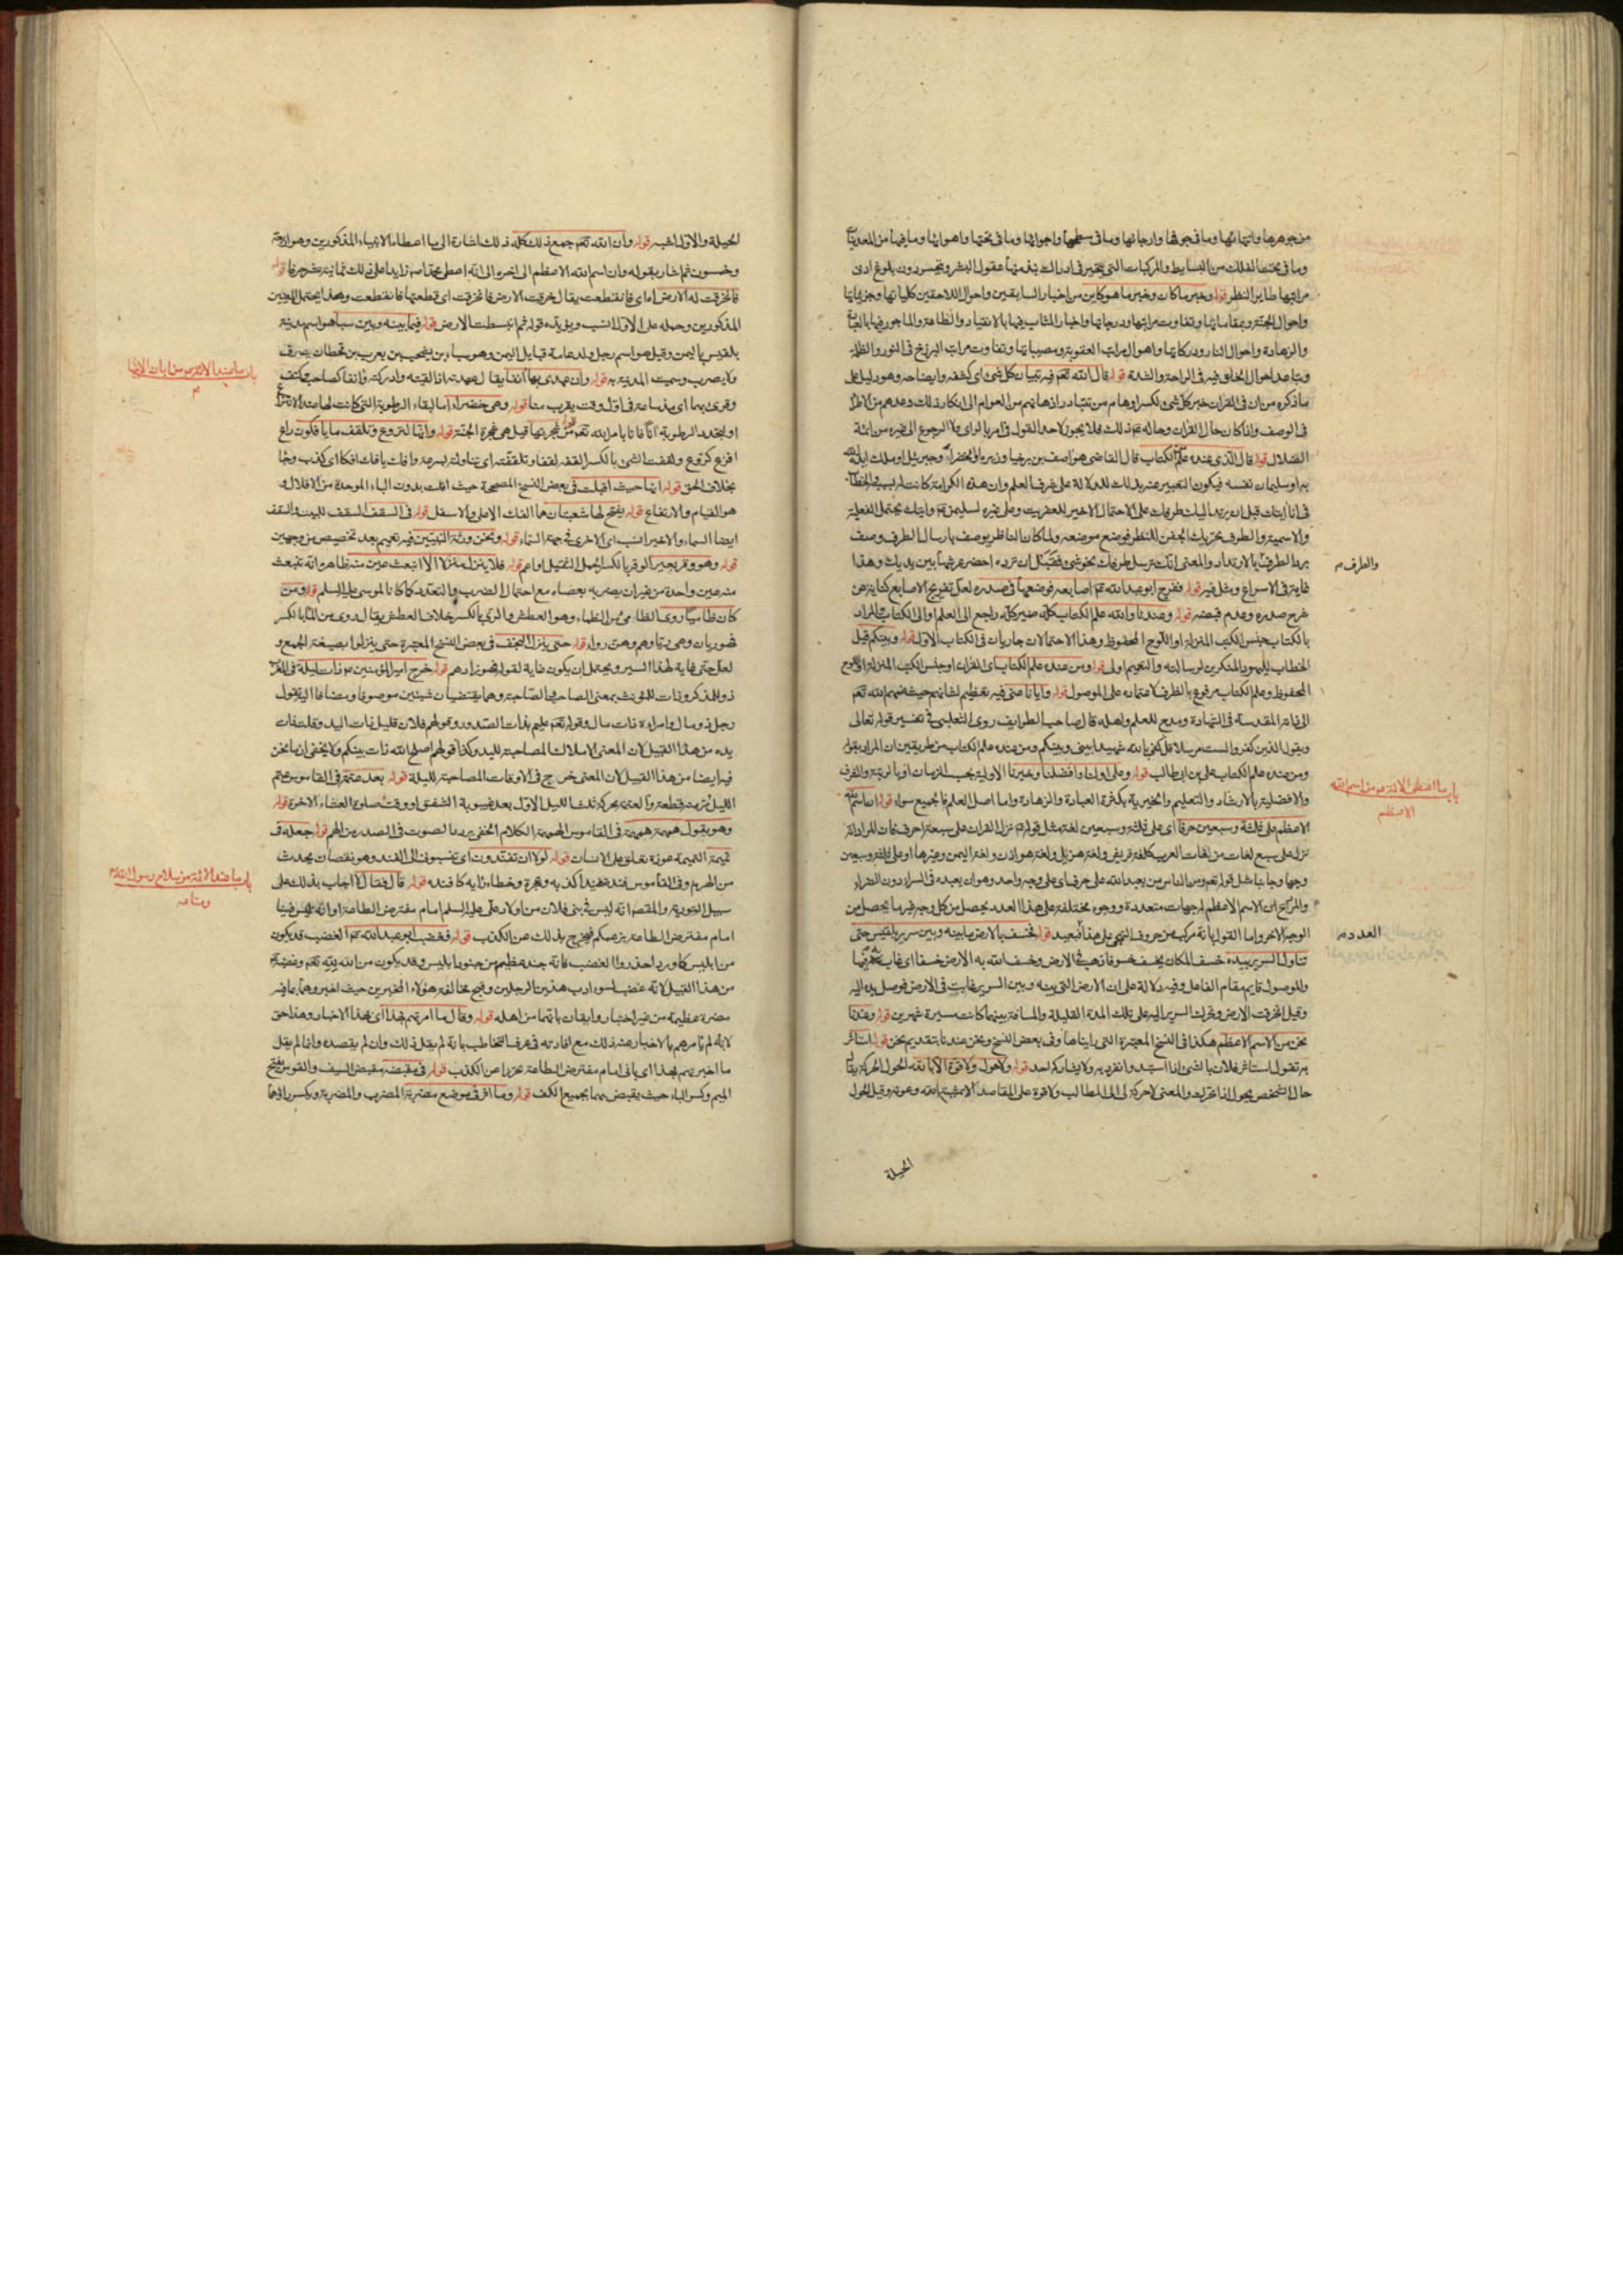 من جوهرها وانهائها وما في جوفها وارجائها وما في سطحها واجوائها وما في تحتها واهوائها وما فيها من المعدنيات
وما في تحت الفلك من البسايط والمركبات التي يتحير في ادراك نبذ منها عقول البشر ويتحسر دون بلوغ ادنى
مراتبها طاير النظر قوله وخبر ما كان وخبر ما هو كاين من اخبار السابقين واحوال اللاحقين كلياتها وجزئياتها
واحوال الجنة ومقاماتها وتفاوت مراتبها ودرجاتها واخبار المثاب فيها بالانقياد والطاعة والماجور فيها بالعبادة
والزهادة واحوال النار ودركاتها واهوال مراتب العقوبة ومصيباتها وتفاوت مراتب البرزخ في النور والظلمة
وتباعد احوال الخلق فيه في الراحة والشدة قوله قال الله تعم فيه تبيان كل شئ اي كشفه وايضاحه وهو دليل على
ما ذكره من ان في القران خبر كل شئ لكسر اوهام من تتبادر اذهانهم من العوام الى انكار ذلك وعدهم من الاطراء
في الوصف واذا كان حال القران وحاله عم ذلك فلا يجوز لاحد القول في امر بالراي ولا الرجوع الى غيره من ائمة
الضلال قوله قال الذي عنده علم الكتاب قال القاضي هو اصف بن برخيا وزيره او الخضر او جبرئيل او ملك ايده الله
به او سليمان نفسه فيكون التعبير عنه بذلك للدلالة على شرف العلم وان هذه الكرامة كانت بسببه والخطاب
في انا اتيك قبل ان يرتد اليك طرفك على الاحتمال الاخير للعفريت وعلى غيره لسليمن عم واتيك يحتمل الفعلية
والاسمية والطرف تحريك الجفن للنظر فوضع موضعه ولما كان الناظر يوصف بارسال الطرف وصف
برد الطرف والطرف بالارتداد والمعنى انك ترسل طرفك نحو شئ فقبل ان ترده احضر عرشها بين يديك وهذا
غاية في الاسراع ومثل فيه قوله ففرج ابو عبد الله عم اصابعه فوضعها في صدره لعل تفريج الاصابع كناية عن
شرح صدره وعدم قبضه قوله وعندنا والله علم الكتاب كله ضمير كله راجع الى العلم او الى الكتاب والمراد
بالكتاب جنس الكتب المنزلة او اللوح المحفوظ وهذا الاحتمالات جاريات في الكتاب الاول قوله وبينكم قيل
الخطاب لليهود المنكرين لرسالته والتعميم اولى قوله ومن عنده علم الكتاب اي القران او جنس الكتب المنزلة او اللوح
المحفوظ وعلم الكتاب مرفوع بالظرف لاعتماده على الموصول قوله وايانا عنى فيه تعظيم لشانهم حيث ضمهم الله تعم
الى ذاته المقدسة في الشهادة ومدح للعلم واهله قال صاحب الطرايف روى الثعلبي في تفسير قوله تعالى
ويقول الذين كفروا لست مرسلا قل كفى بالله شهيدا بيني وبينكم ومن عنده علم الكتاب من طريقين ان المراد بقوله
ومن عنده علم الكتاب علي بن ابي طالب قوله وعلي اولنا وافضلنا وخيرنا الاولية بحسب الزمان او بالرتبة والشرف
والافضلية بالارشاد والتعليم والخيرية بكثرة العبادة والزهادة واما اصل العلم فالجميع سواء قوله ان اسم الله
الاعظم على ثلثة وسبعين حرفا اي على ثلثة وسبعين لغة مثل قوله عم نزل القران على سبعة احرف فان المراد انه
نزل على سبع لغات من لغات العرب كلغة قريش ولغة هذيل ولغة هوازن ولغة اليمن وغيرها او على ثلثة وسبعين
وجها وجانبا مثل قوله تعم ومن الناس من يعبد الله على حرف اي على وجه واحد وهو ان يعبده في السراء دون الضراء
ان الاسم الاعظم له جهات متعددة ووجوه مختلفة على هذا العدد يحصل من كل وجه غير ما يحصل من
الوجه الاخر واما القول بانه مركب من حروف التهجي على هذا العدد فبعيد قوله فخسف بالارض ما بينه وبين سرير بلقيس حتى
تناول السرير بيده خسف المكان يخسف خسوفا ذهب في الارض وخسف الله به الارض خسفا اي غاب به فيها
والموصول قايم مقام الفاعل وفيه دلالة على ان الارض التي بينه وبين السرير غابت في الارض فوصل يده اليه
وقيل انخرقت الارض وتحرك السرير اليه على تلك المدة القليلة والمسافة بينهما كانت مسيرة شهرين قوله وعندنا
نحن من الاسم الاعظم هكذا في النسخ المعتبرة التي رايناها وفي بعض النسخ ونحن عندنا بتقديم نحن قوله استاثر
به تقول استاثر فلان بالشئ اذا استبد وانفرد به ولا يشاركه احد قوله ولا حول ولا قوة الا بالله الحول الحركة يقال
حال الشخص يحول اذا تحرك والمعنى لا حركة لي الى المطالب ولا قوة على المقاصد الا بمشية الله وعونه وقيل الحول
الحيلة
والطرف م
باب ما اعطي الائمة من اسم الله
الاعظم
العدد م
الحيلة والاول اشبه قوله وان الله تعم جمع ذلك كله ذلك اشارة الى ما اعطاه الانبياء المذكورين وهو اربعة
وخمسون ثم اشار بقوله وان اسم الله الاعظم الى اخره الى انه اعطى محمدا صم زايدا على ذلك ثمانية عشر حرفا قوله
فانخرقت له الارض اما اي فانقطعت يقال خرقت الارض فانخرقت اي قطعتها فانقطعت وهذا يحتمل المعنيين
المذكورين وحمله على الاول انسب ويؤيده قوله ثم انبسطت الارض قوله فيما بينه وبين سبا هو اسم مدينة
بلقيس باليمن وقيل هو اسم رجل ولد عامة قبايل اليمن وهو سباء بن يشجب بن يعرب بن قحطان يصرف
ولا يصرف وسميت المدينة به قوله وان عهدي بها انفا يقال عهدته اذا لقيته وادركته وانفا كصاحب وكتف
وقرئ بهما اي مذ ساعة في اول وقت يقرب منا قوله وهي خضراء اما لبقاء الرطوبة التي كانت لها عند الانتزاع
او لتجدد الرطوبة انا فانا بامر الله تعم قوله من شجرتها قيل هي شجرة الجنة قوله وانها لتروع وتلقف ما يافكون راع
افزع كروع ولقفت الشئ بالكسر القفه لقفا وتلقفته اي تناولته بسرعة وافك يافك افكا اي كذب وجاء
بخلاف الحق قوله انها حيث اقبلت في بعض النسخ المصححة حيث اقلت بدون الباء الموحدة من الاقلال و
هو القيام والارتفاع قوله يفتح لها شعبتان هما الفك الاعلى والاسفل قوله في السقف السقف للبيت والسقف
ايضا السماء والاخير انسب اي الاخرى في جهة السماء قوله ونحن ورثة النبيين فيه تعميم بعد تخصيص من وجهين
قوله وهو وقر بعير الوقر بالكسر الحمل الثقيل او اعم قوله فلا ينزل منزلا الا انبعث عين منه ظاهره انه تنبعث
منه عين واحدة من غير ان يضربه بعصاه مع احتمال الضرب والتعدد كما كانا لموسى عليه السلم قوله ومن
كان ظاميا روى الظامي من الظماء وهو العطش والري بالكسر خلاف العطش يقال روى من الماء بالكسر
فهو ريان وهي ريا وهم وهن رواء قوله حتى ينزل النجف في بعض النسخ المعتبرة حتى ينزلوا بصيغة الجمع و
لعل حتى غاية لهذا السير ويحتمل ان يكون غاية لقوله فهو زادهم قوله خرج امير المؤمنين عم ذات ليلة في المغرب
ذو للمذكر وذات للمؤنث بمعنى الصاحب والصاحبة وهما يقتضيان شيئين موصوفا ومضافا اليه تقول
رجل ذو مال وامراة ذات مال وقوله تعم عليم بذات الصدور وقولهم فلان قليل ذات اليد وقلت ذات
يده من هذا القبيل لان المعنى الاملاك المصاحبة لليد وكذا قولهم اصلح الله ذات بينكم ولا يخفى ان ما نحن
فيه ايضا من هذا القبيل لان المعنى خرج في الاوقات المصاحبة لليلة قوله بعد عتمة في القاموس عتم
الليل مر منه قطعة والعتمة محركة ثلث الليل الاول بعد غيبوبة الشفق او وقت صلوة العشاء الاخرة قوله
وهو يقول همهمة همهمة في القاموس الهمهمة الكلام الخفي وترديد الصوت في الصدر من الهم قوله جعله في
تميمة التميمة عوذة تعلق على الانسان قوله لولا ان تفندون اي تنسبوني الى الفند وهو نقصان يحدث
من الهرم وفي القاموس فنده تفنيدا كذبه وعجزه وخطاء رايه كافنده قوله قال فقال لا اجاب بذلك على
سبيل التورية والمقصد انه ليس في بني فلان من اولاد علي عليه السلم امام مفترض الطاعة او انه ليس فينا
امام مفترض الطاعة بزعمكم فيخرج بذلك عن الكذب قوله فغضب ابو عبد الله عم الغضب قد يكون
من ابليس كما ورد احذروا الغضب فانه جند عظيم من جنود ابليس وقد يكون من الله لله تعم وغضبه
من هذا القبيل لانه غضب لسوء ادب هذين الرجلين وقبح مخالفة هؤلاء المخبرين حيث اخبروهما بما فيه
مضرة عظيمة من غير اختبار وايقان بانهما من اهله قوله وقال ما امرتهم بهذا اي بهذا الاخبار وهذا حق
لانه لم يامرهم بالاخبار عنه ذلك مع افادته في عرف التخاطب بانه لم يقل ذلك وان لم يقصده وانما لم يقل
ما اخبرتهم بهذا اي باني امام مفترض الطاعة تحرزا عن الكذب قوله في مقبضه مقبض السيف والقوس بفتح
الميم وكسر الباء حيث يقبض بهما بجميع الكف قوله وما اثر في موضع مضربه المضرب والمضربة وبكسر رائهما
باب ما عند الائمة من ايات الانبيا
م
باب ما عند الائمة من سلاح رسول الله
ومتاعه